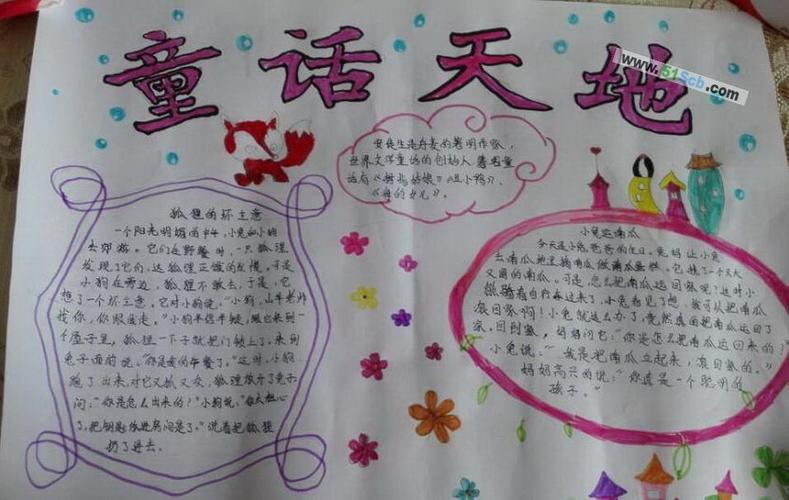 童话天地
www.51Scb.com
安徒生是丹麦的著名作家，
世界文学童话的创始人，著名童
话有《拇指姑娘》《丑小鸭》、
《海的女儿》。
狐狸的坏主意
一个阳光明媚的中午，小兔和小狗
去郊游。它们在野餐时，一只狐狸
发现了它们，这狐狸正饿的发慌。可是
小狗在旁边，狐狸不敢去，于是，它
想了一个坏主意，它对小狗说："小狗，山羊老师
找你，你跟我走。"小狗半信半疑，跟它来到一
个屋子里，狐狸一下子就把门锁上了。来到
兔子面前说："你是我的午餐了。"这时，小狗
跑了出来，对它又抓又咬，狐狸放开了兔子
问："你是怎么出来的？"小狗说："你太粗心
了，把钥匙放进房间是了。"说着把狐狸
扔了出去。
小兔运南瓜
今天是小兔爸爸的生日。兔妈让小兔
去南瓜地里摘南瓜做南瓜蛋糕。它摘了一个又大
又圆的南瓜。可是，怎么把南瓜运回家呢？这时小
熊骑着自行车过来了，小兔看见了想，我可以把南瓜
滚回家啊！小兔就这么办了，竟然真的把南瓜运回了
家，回到家，妈妈问它："你是怎么把南瓜运回来的？"
小兔说："我是把南瓜立起来，滚回家的。"
妈妈高兴的说："你真是一个聪明的
孩子。"